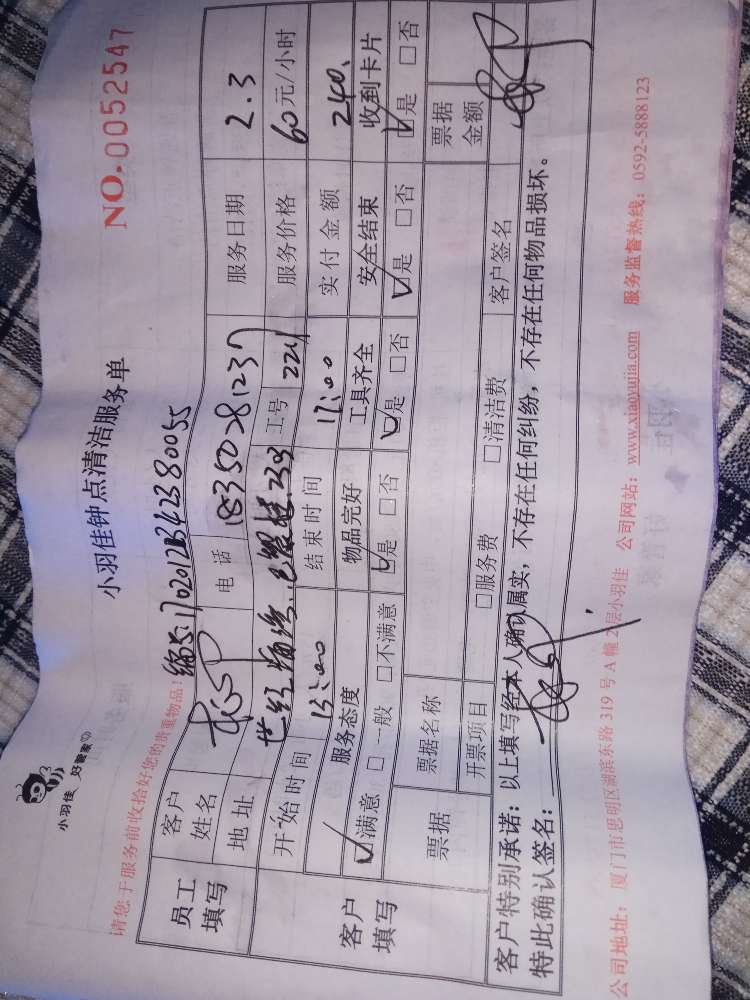 小羽佳 好管家
小羽佳钟点清洁服务单
NO.0052547
请您于服务前收拾好您的贵重物品!
员工填写
客户姓名
电话 18350281237
服务日期 2.3
地址
工号 224
服务价格 60元/小时
客户填写
开始时间 13:00
结束时间 17:00
实付金额 240.
服务态度 物品完好 工具齐全 安全结束 收到卡片
☑满意 □一般 □不满意 ☑是 □否 ☑是 □否 ☑是 □否 ☑是 □否
票据 票据名称 票据金额
开票项目 □服务费 □清洁费 客户签名
客户特别承诺:以上填写经本人确认属实,不存在任何纠纷,不存在任何物品损坏。
特此确认签名:
公司地址:厦门市思明区湖滨东路 319 号 A 幢 2 层小羽佳 公司网站:www.xiaoyujia.com 服务监督热线:0592-5888123